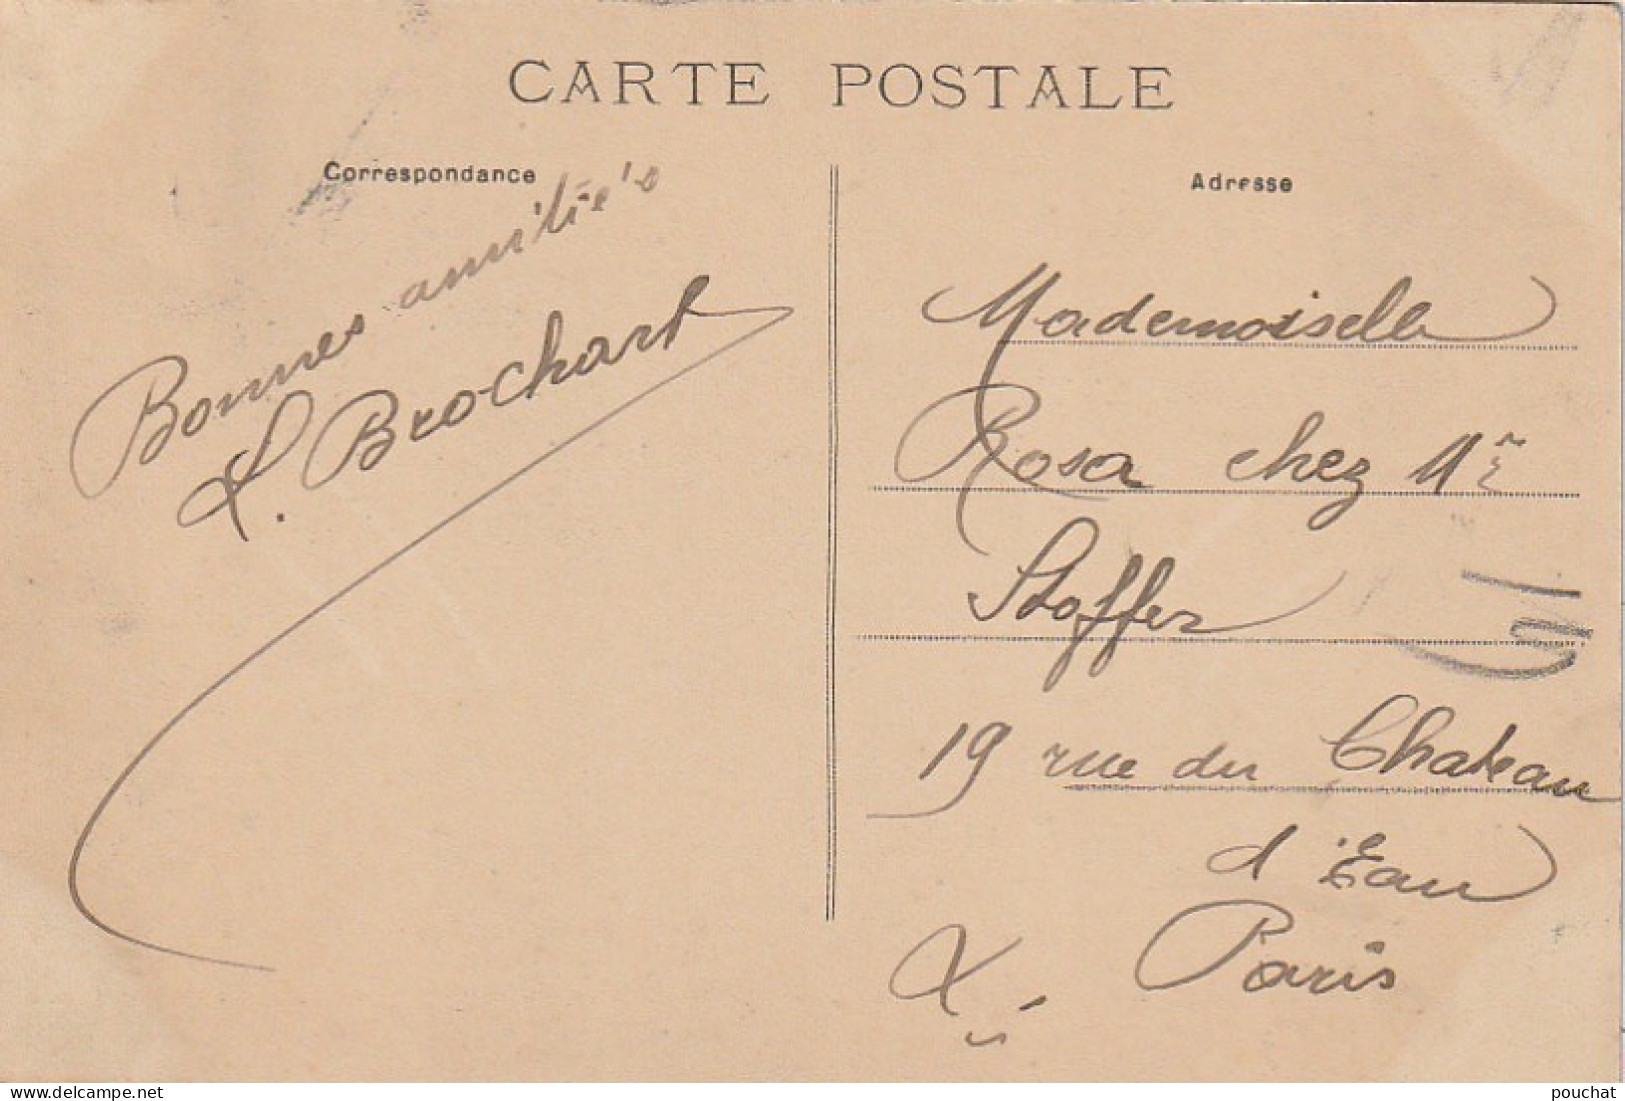 CARTE POSTALE
Correspondance
Bonnes amitiés
Brochart
Adresse
Mademoiselle
Rosa chez Mr
Stoffer
19 rue du Chateau
d'Eau
Paris
X
pouchat
www.delcampe.net